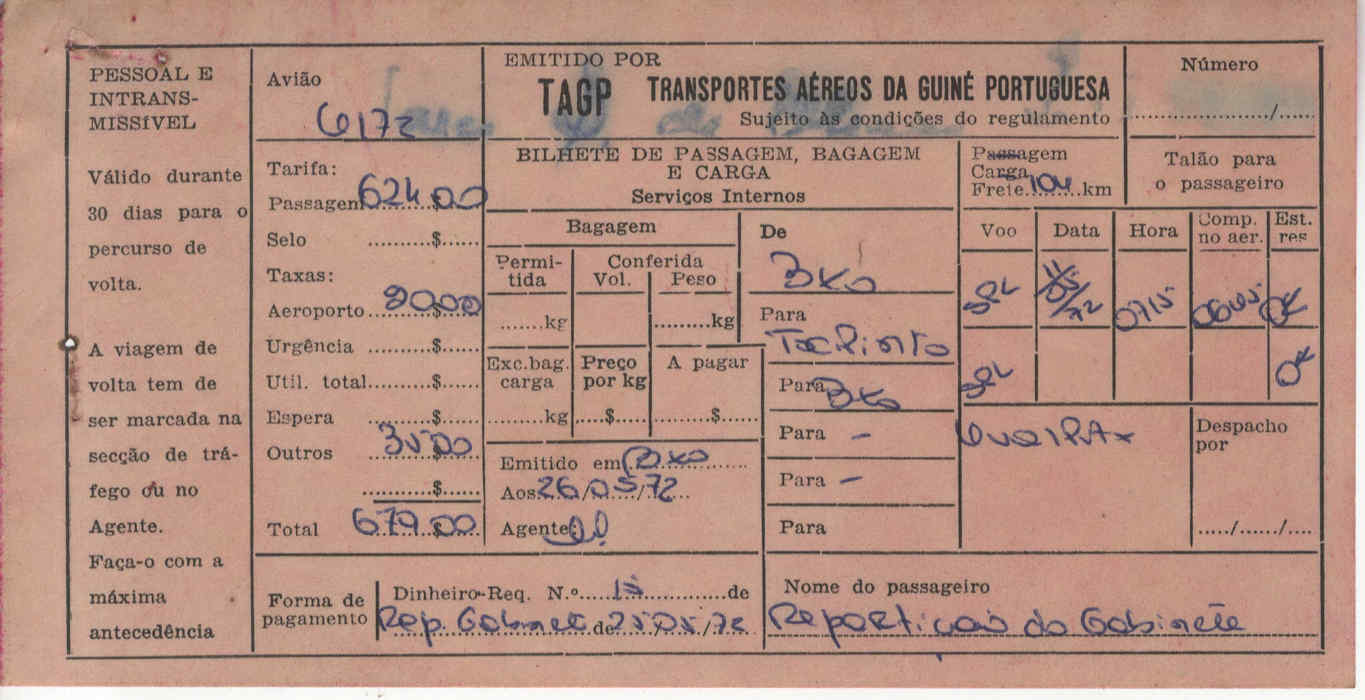 PESSOAL E
INTRANS-
MISSÍVEL
Válido durante
30 dias para o
percurso de
volta.
A viagem de
volta tem de
ser marcada na
secção de trá-
fego ou no
Agente.
Faça-o com a
máxima
antecedência
Avião
6172
Tarifa:
Passagem 624.00
Selo ..........$......
Taxas:
Aeroporto 20.00
Urgência ..........$......
Util. total..........$......
Espera ..........$......
Outros 35.00
..........$......
Total 679.00
EMITIDO POR
TAGP TRANSPORTES AÉREOS DA GUINÉ PORTUGUESA
Sujeito às condições do regulamento
BILHETE DE PASSAGEM, BAGAGEM
E CARGA
Serviços Internos
Bagagem
Permi-
tida
Conferida
Vol. Peso
.......kg .........kg
Exc.bag.
carga
Preço
por kg
A pagar
.......kg .....$..... .........$......
Emitido em Bxo
Aos 26/05/72
Agente:
De
Bxo
Para
Tec Pinto
Para Bxo
Para –
Para –
Para
Número
....................../......
Passagem
Carga
Frete 104 km
Talão para
o passageiro
Voo Data Hora Comp.
no aer. Est.
res
0715 0645 OK
OK
Despacho
por
...../....../....
Forma de
pagamento
Dinheiro-Req. N.º 15 de
Rep. Gabinete de 25/05/72
Nome do passageiro
Repartição do Gabinete